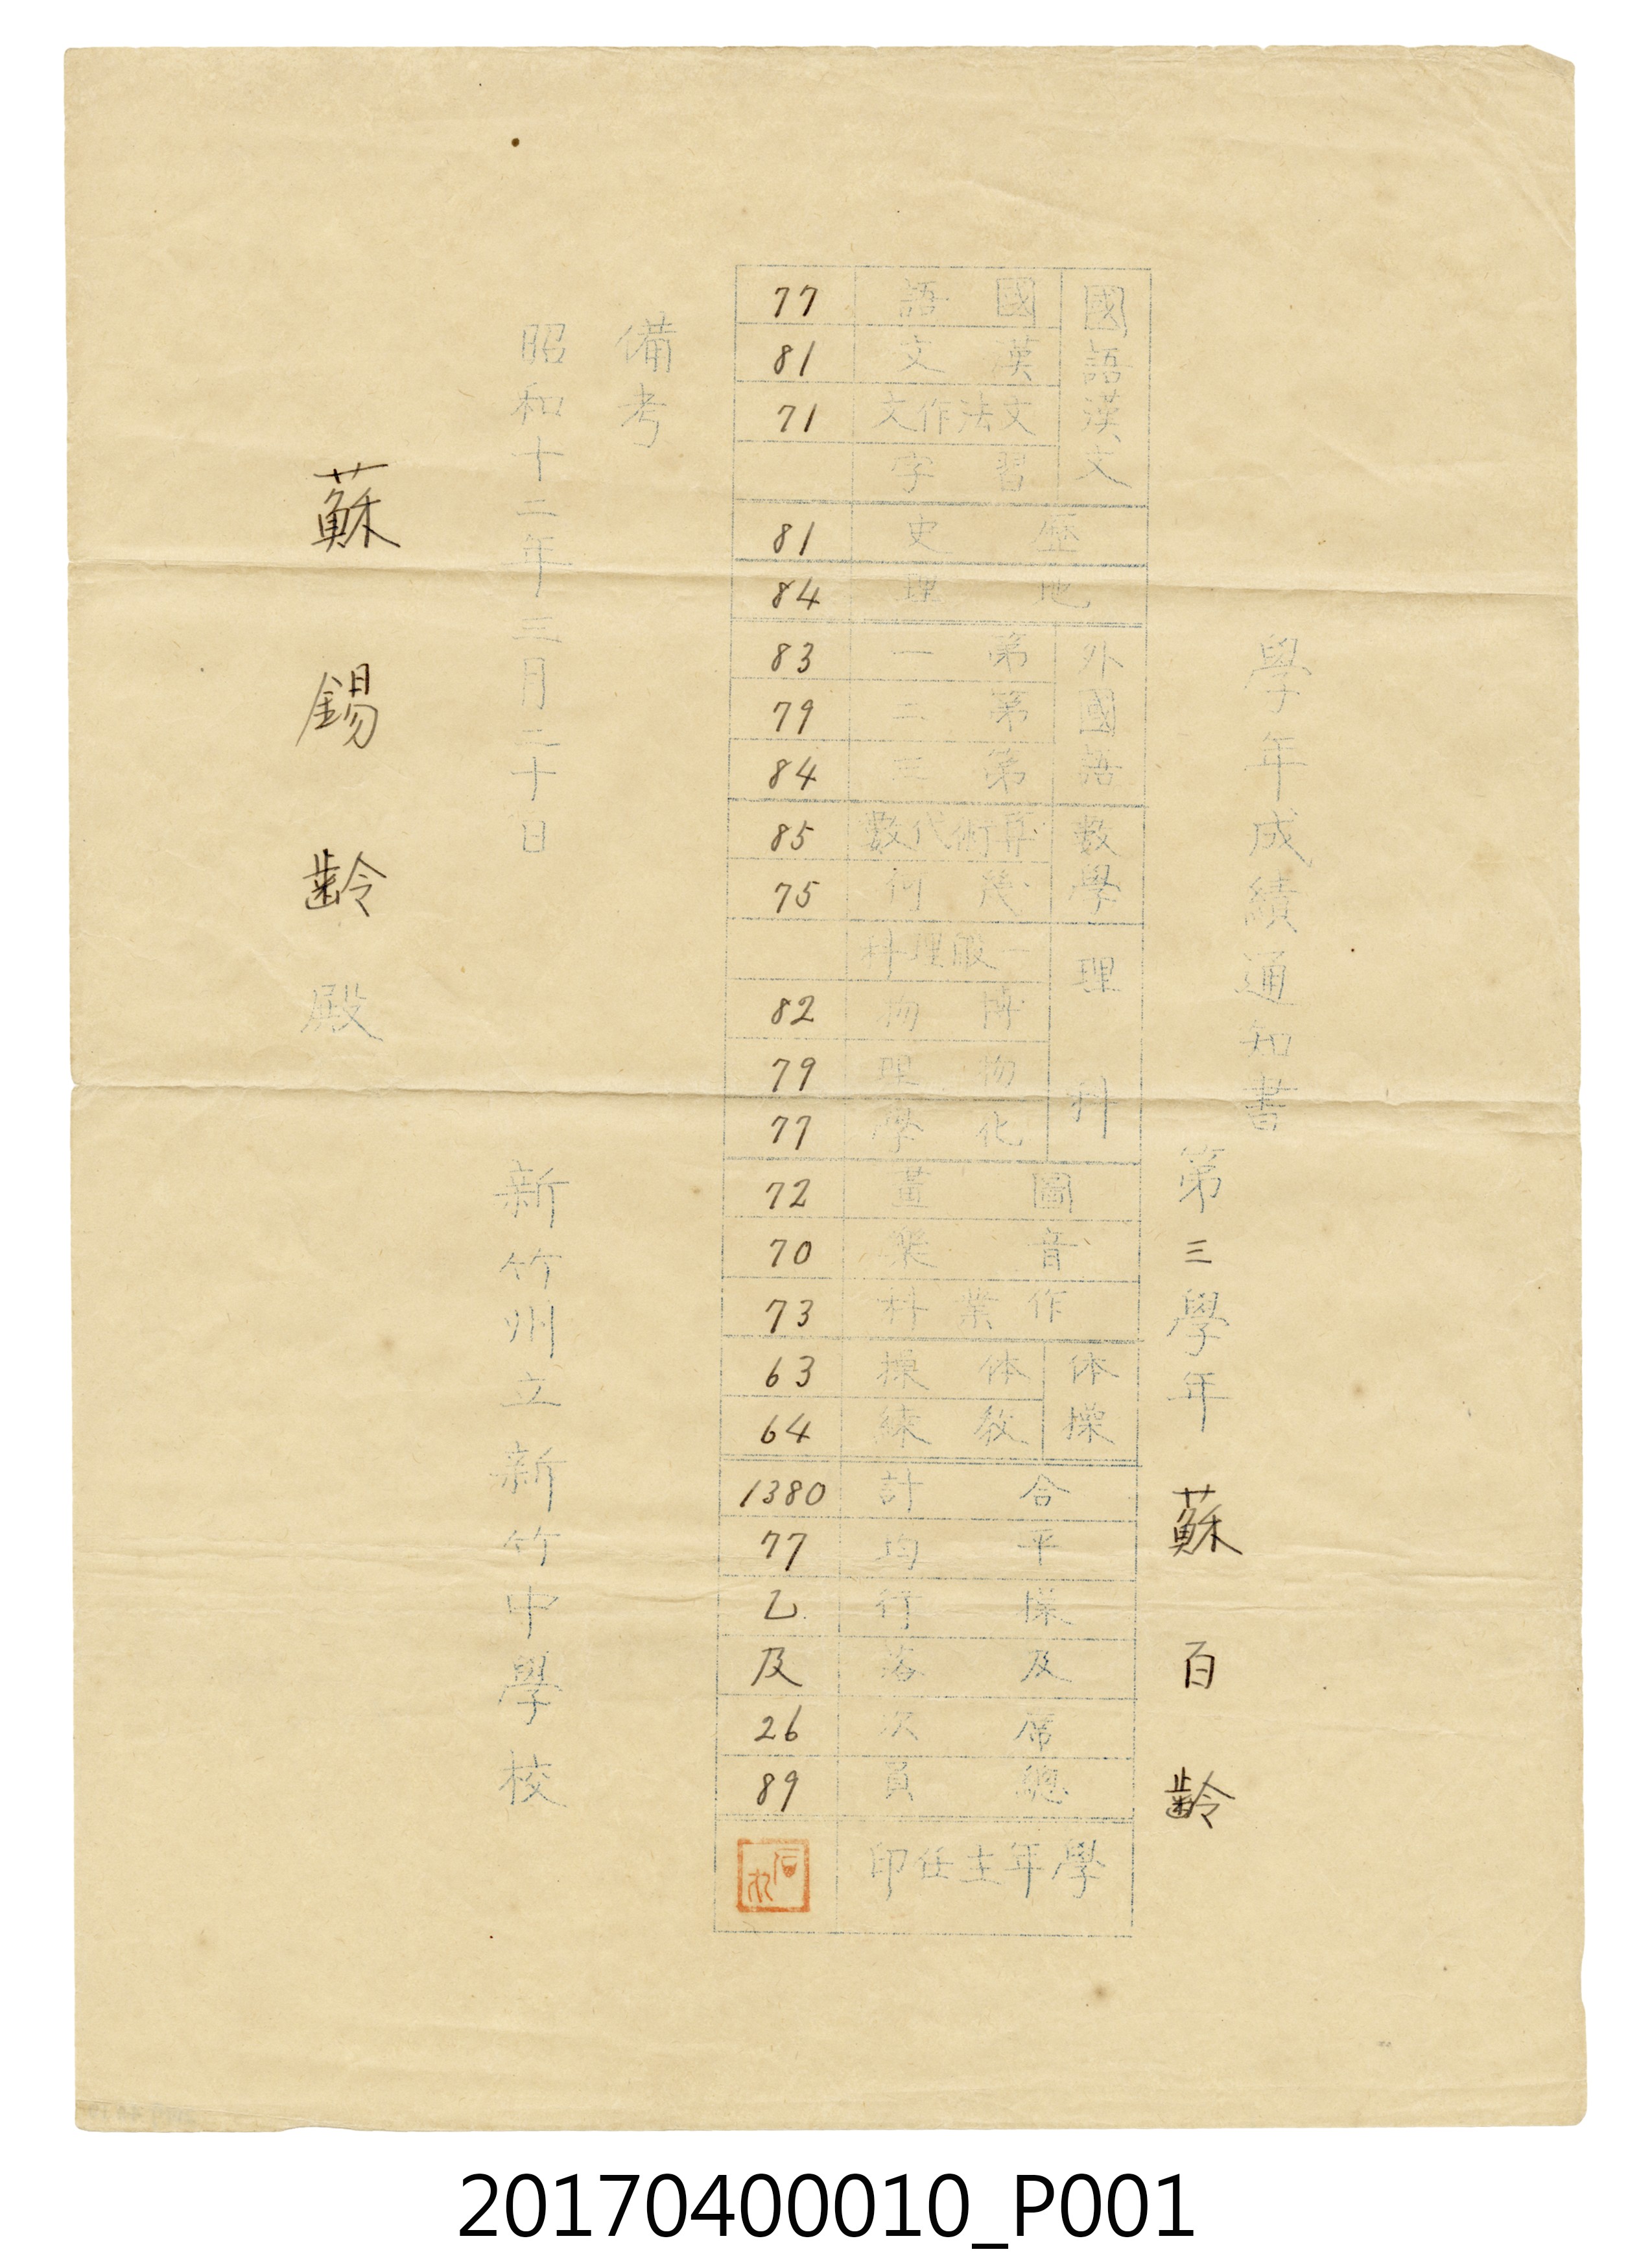 學年成績通知書
第三學年 蘇百齡
國語漢文 國語 77
漢文 81
文法作文 71
習字
歷史 81
地理 84
外國語 第一 83
第二 79
第三 84
數學 算術代數 85
幾何 75
理科 一般理科
博物 82
物理 79
化學 77
圖畫 72
音樂 70
作業科 73
体操 体操 63
教練 64
合計 1380
平均 77
操行 乙
及落 及
席次 26
總員 89
學年主任印
備考
昭和十二年三月二十日
新竹州立新竹中學校
蘇錫齡殿
20170400010_P001